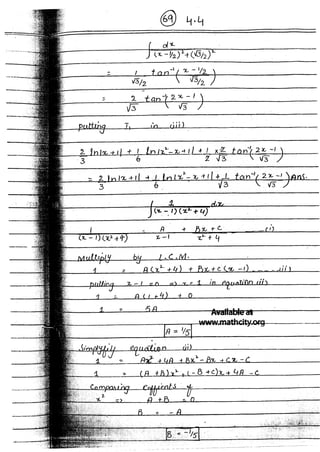 69 4.4
∫ dx / (x - 1/2)² + (√3/2)²
= 1/(√3/2) tan⁻¹ ( (x - 1/2) / (√3/2) )
= 2/√3 tan⁻¹ ( (2x - 1) / √3 )
putting I₁ in (iii)
2/3 ln|x+1| + 1/6 ln|x²-x+1| + 1/2 x 2/√3 tan⁻¹ ( (2x - 1) / √3 )
= 2/3 ln|x+1| + 1/6 ln|x²-x+1| + 1/√3 tan⁻¹ ( (2x - 1) / √3 ) Ans.
∫ 1 / (x - 1)(x² + 4) dx
1 / (x - 1)(x² + 4) = A / (x - 1) + (Bx + C) / (x² + 4) (i)
Multiply by L.C.M.
1 = A(x² + 4) + Bx + C (x - 1) (ii)
putting x - 1 = 0 => x = 1 in equation (ii)
1 = A(1 + 4) + 0
1 = 5A
Available at
www.mathcity.org
A = 1/5
Simplify equation (ii)
1 = Ax² + 4A + Bx² - Bx + Cx - C
1 = (A + B)x² + (-B + C)x + 4A - C
Comparing
x² => A + B = 0
B = -A
B = -1/5